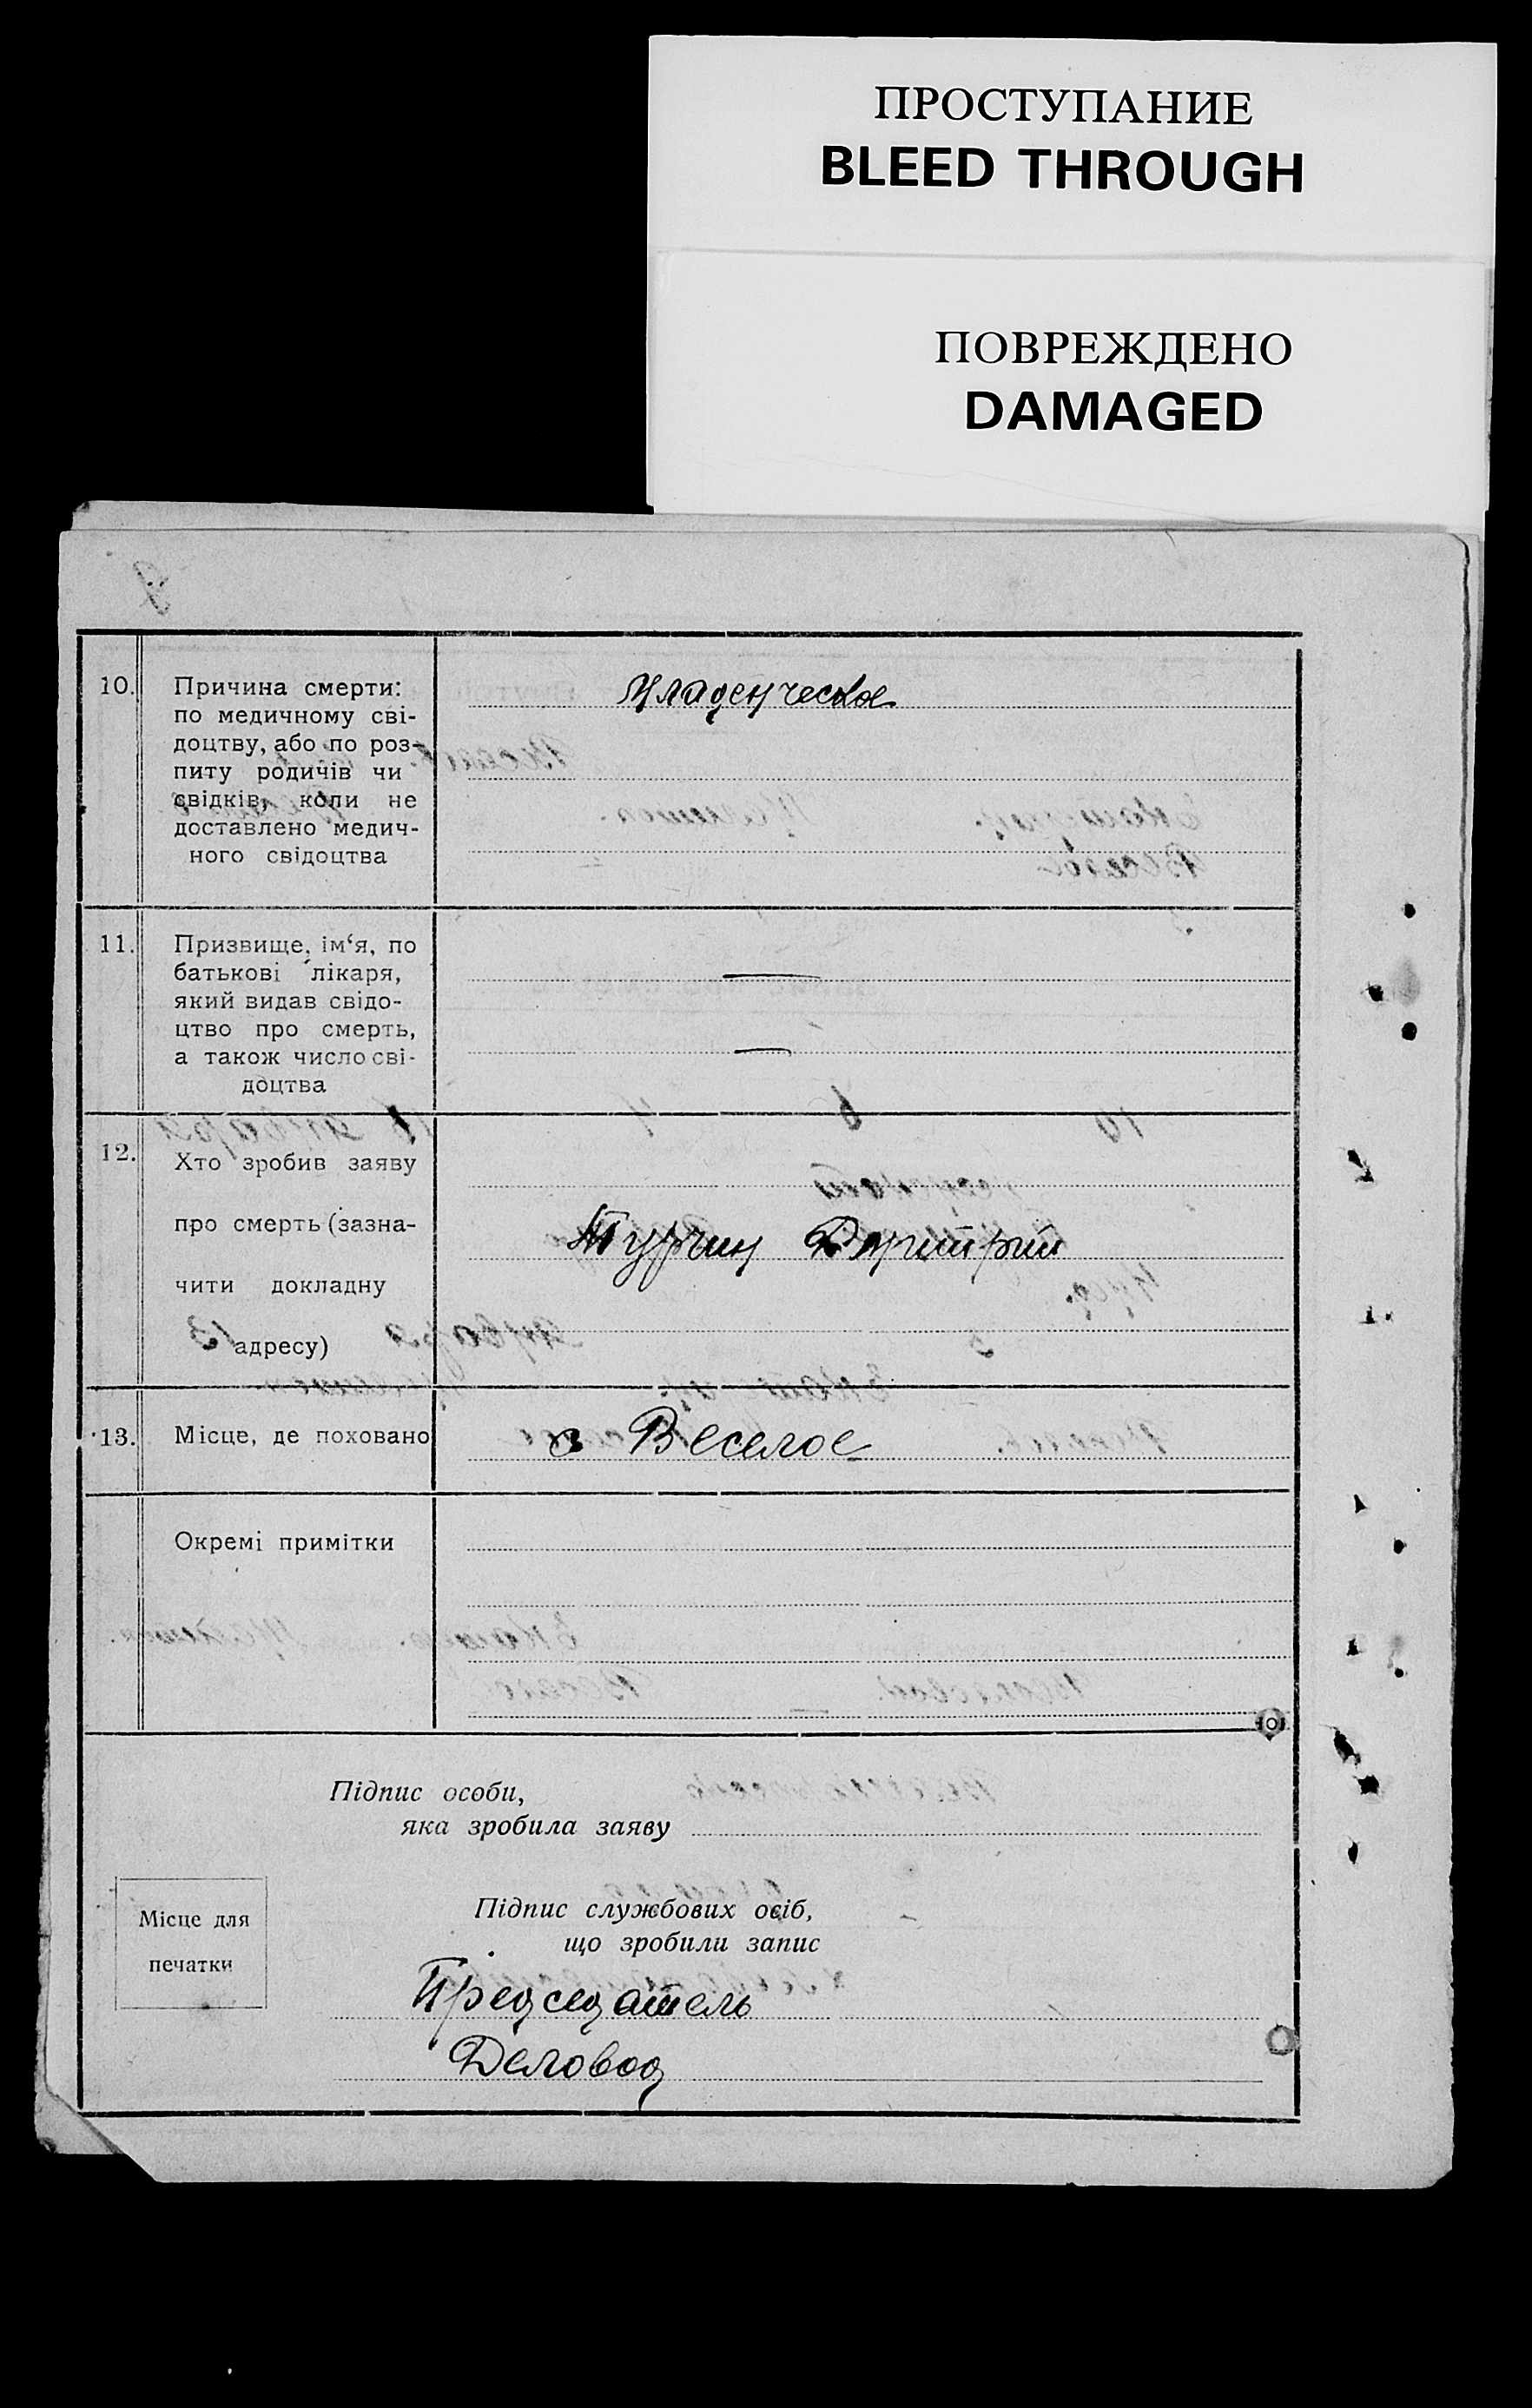 ПРОСТУПАНИЕ
BLEED THROUGH
ПОВРЕЖДЕНО
DAMAGED
10. Причина смерти: Младенческое
по медичному сві-
доцтву, або по роз-
питу родичів чи
свідків, коли не
доставлено медич-
ного свідоцтва
11. Призвище, ім‘я, по
батькові лікаря, —
який видав свідо-
цтво про смерть,
а також число сві- —
доцтва
12. Хто зробив заяву
про смерть (зазна- Турчин Дмитрий
чити докладну
адресу)
13. Місце, де поховано с Веселое
Окремі примітки
Підпис особи,
яка зробила заяву
Місце для
печатки
Підпис службових осіб,
що зробили запис
Председатель
Деловод